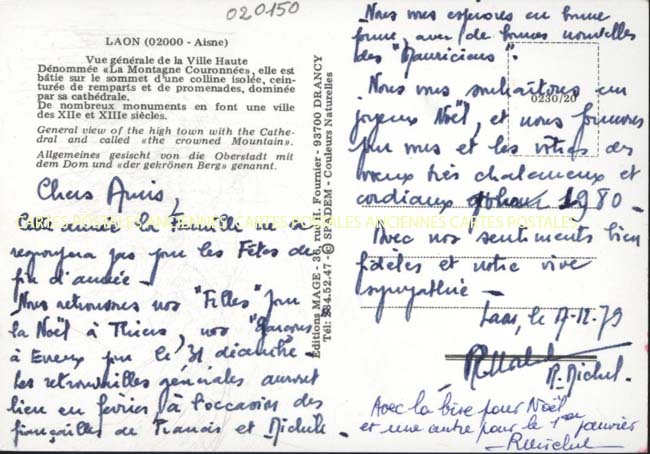 020150
LAON (02000 - Aisne)
Vue générale de la Ville Haute
Dénommée «La Montagne Couronnée», elle est
bâtie sur le sommet d'une colline isolée, cein-
turée de remparts et de promenades, dominée
par sa cathédrale.
De nombreux monuments en font une ville
des XIIe et XIIIe siècles.
General view of the high town with the Cathe-
dral and called «the crowned Mountain».
Allgemeines gesischt von die Oberstadt mit
dem Dom und «der gekrönen Berg» genannt.
Chers Amis,
Cette année la Famille ne se
regroupera pas pour les Fêtes de
fin d'année -
Nous retrouvons nos "Filles" pour
la Noël à Thiers, nos "Garçons
à Evreux pour le 31 décembre -
Les retrouvailles générales auront
lieu en février à l'occasion des
fiançailles de Francis et Michèle -
Editions MAGE - 35, rue H. Fournier - 93700 DRANCY
Tél: 284.52.47 - © SPADEM - Couleurs Naturelles
Nous vous espérons en bonne
forme, avec de bonnes nouvelles
des "Mauriciens".
0230/20
Nous vous souhaitons un
joyeux Noël, et nous formons
pour vous et les vôtres des
voeux très chaleureux et
cordiaux pour 1980 -
Avec nos sentiments bien
fidèles et notre vive
sympathie -
Laon, le 17-12-79
R. Michel.
Avec la bise pour Noël
et une autre pour le 1er janvier
- RMichel
CARTES POSTALES ANCIENNES CARTES POSTALES ANCIENNES CARTES POSTALES